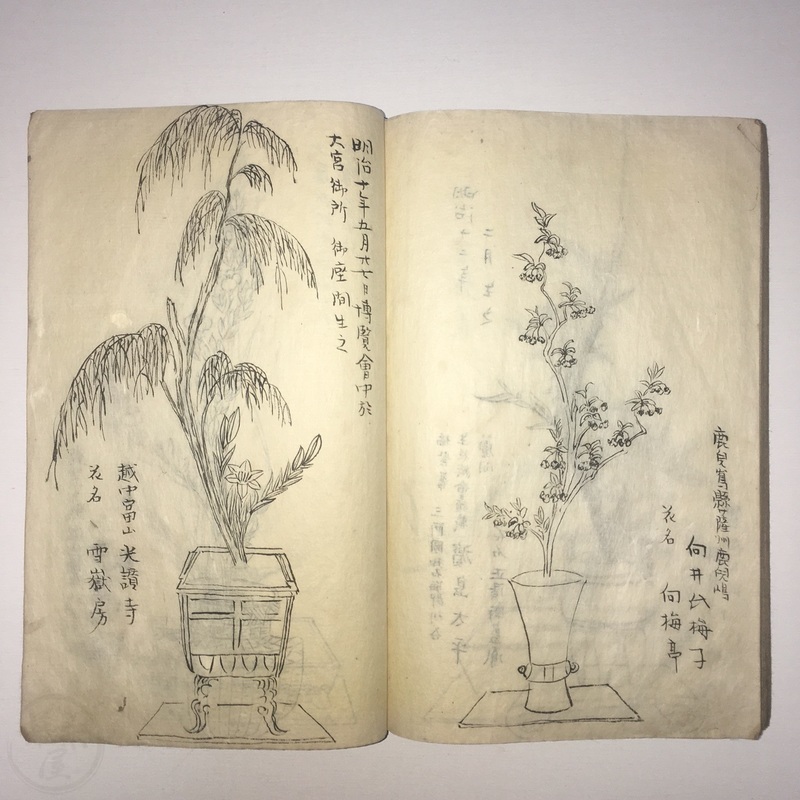 鹿児島縣下薩州鹿児嶋
向井氏梅子
花名 向梅亭
明治十年五月廿七日博覧會中於
大宮御所 御座間生之
越中富山 光讃寺
花名 雪嶽房